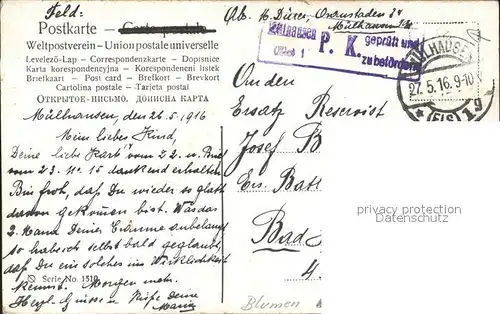 Feld:
Postkarte — Carte postale
Weltpostverein – Union postale universelle
Levelező-Lap — Correspondenzkarte — Dopisnice
Karta korespondencyjna — Korespondenční lístek
Briefkaart — Post card — Brefkort — Brevkort
Cartolina postale — Tarjeta postal
ОТКРЫТОЕ-ПИСЬМО. ДОПИСНА КАРТА
Mülhausen, den 26.5.1916
Mein liebes Kind,
Deine liebe Karte vom 22. u. Brief
vom 23. dankend erhalten
Bin froh, daß Du wieder so glatt
davon gekommen bist. Was das
anbelangt
so habe ich selbst bald geglaubt,
daß Du ein solches in Wirklichkeit
kennst. Morgen mehr.
Herzl. Grüsse u. Küsse Deine
Serie No. 1510
Ab. M. Dürer,
Mülhausen i/E
P. K. geprüft und
zu befördern
MÜLHAUSEN
27.5.16. 9-10
* (ELS) 1 g
An den
Ersatz Reservist
Josef B
Ers. Batt
Bad
4.
Blumen
privates Sammlerarchiv
(Copyright)